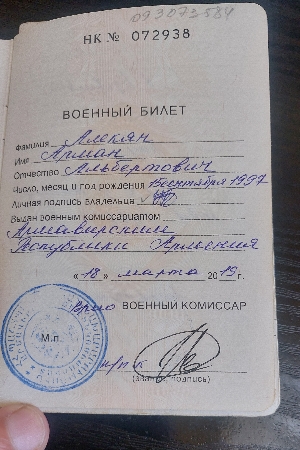 093073584
НК № 072938
ВОЕННЫЙ БИЛЕТ
Фамилия Алекян
Имя Арман
Отчество Альбертович
Число, месяц и год рождения 15 сентября 1997
Личная подпись владельца
Выдан военным комиссариатом
Армавирским
Республики Армения
«18» марта 2015 г.
Врио ВОЕННЫЙ КОМИССАР
М.п.
п/п-к
(звание, подпись)